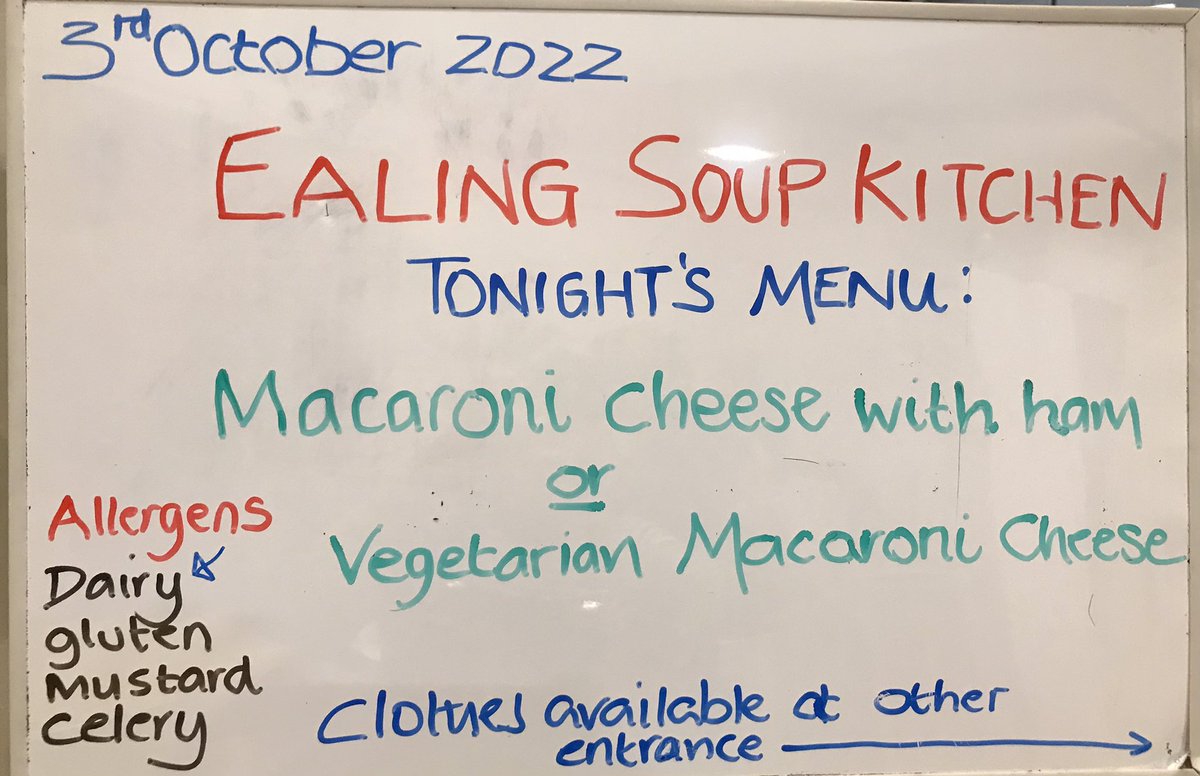 3rd October 2022
EALING SOUP KITCHEN
TONIGHT'S MENU:
Macaroni cheese with ham
or
Vegetarian Macaroni Cheese
Allergens
Dairy
gluten
Mustard
celery
Clothes available at other
entrance